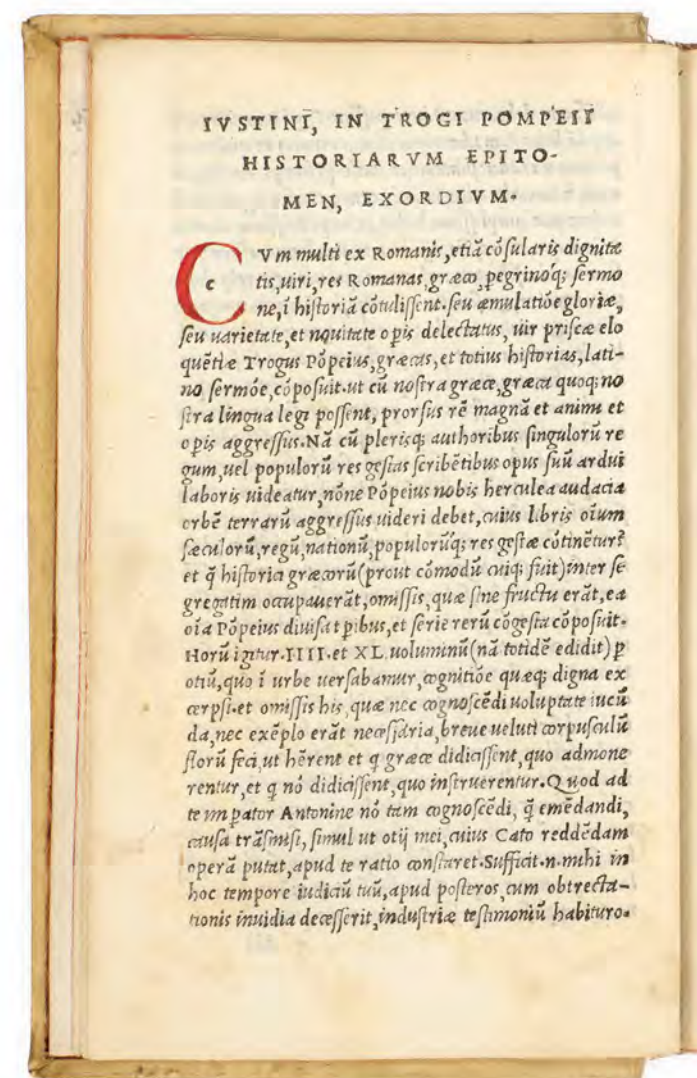 IVSTINI, IN TROGI POMPEII
HISTORIARVM EPITO-
MEN, EXORDIVM.
C
c
Vm multi ex Romanis, etiã cõsularis dignita
tis, uiri, res Romanas, græco, pegrinoq; sermo
ne, ĩ historiã cõtulissent. seu æmulatiõe gloriæ,
seu uarietate, et nouitate opis delectatus, uir priscæ elo
quẽtiæ Trogus Põpeius, græcas, et totius historias, lati-
no sermõe, cõposuit. ut cũ nostra græce, græca quoq; no
stra lingua legi possent, prorsus rẽ magnã et animi et
opis aggressus. Nã cũ plerisq; authoribus singulorũ re
gum, uel populorũ res gestas scribẽtibus opus suũ ardui
laboris uideatur, nõne Põpeius nobis herculea audacia
orbẽ terrarũ aggressus uideri debet, cuius libris oĩum
sæculorũ, regũ, nationũ, populorũq; res gestæ cõtinẽtur?
et q̃ historici græcorũ (prout cõmodũ cuiq; fuit) inter se
gregatim occupauerãt, omissis, quæ sine fructu erãt, ea
oĩa Põpeius diuisa t pibus, et serie rerũ cõgesta cõposuit.
Horũ igitur. IIII. et XL uoluminũ (nã totidẽ edidit) p
otiũ, quo ĩ urbe uersabamur, cognitiõe quæq; digna ex
cerpsi. et omissis his, quæ nec cognoscẽdi uoluptate iucũ
da, nec exẽplo erãt necessaria, breue ueluti corpusculũ
florũ feci, ut hẽrent et q græce didicissent, quo admone
rentur, et q nõ didicissent, quo instruerentur. Quod ad
te impator Antonine nõ tam cognoscẽdi, q̃ emẽdandi,
causa trãsmisi, simul ut otij mei, cuius Cato reddẽdam
operã putat, apud te ratio constaret. Sufficit. n. mihi in
hoc tempore iudiciũ tuũ, apud posteros, cum obtrecta-
tionis inuidia decesserit, industriæ testimoniũ habituro.